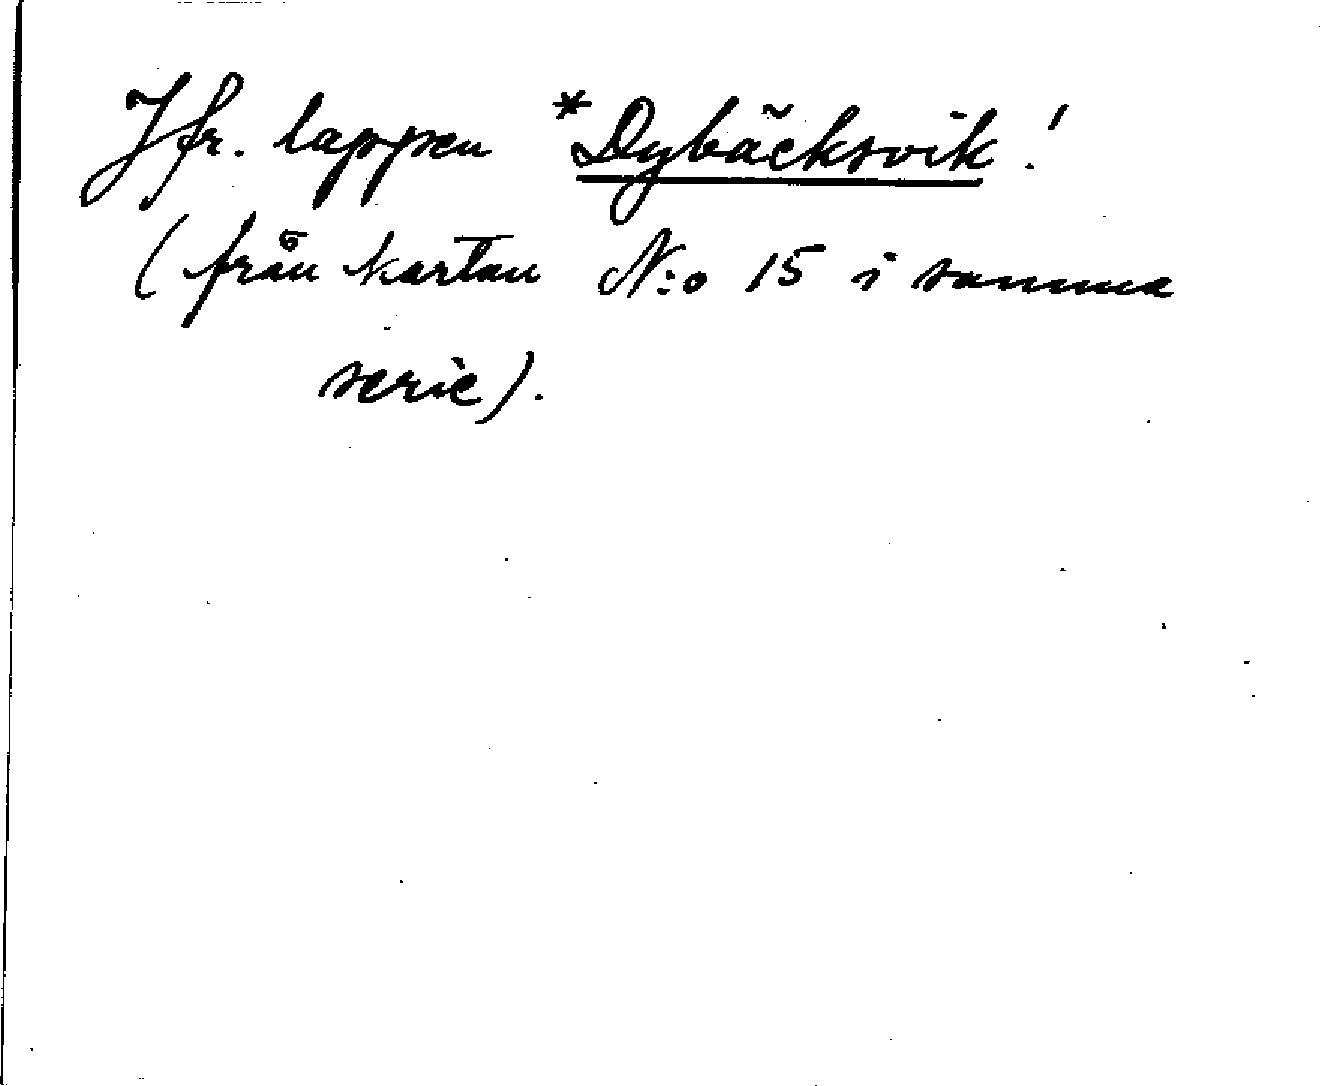 Jfr. lappen *Dybäcksvik!
(från kartan N:o 15 i samma
serie).